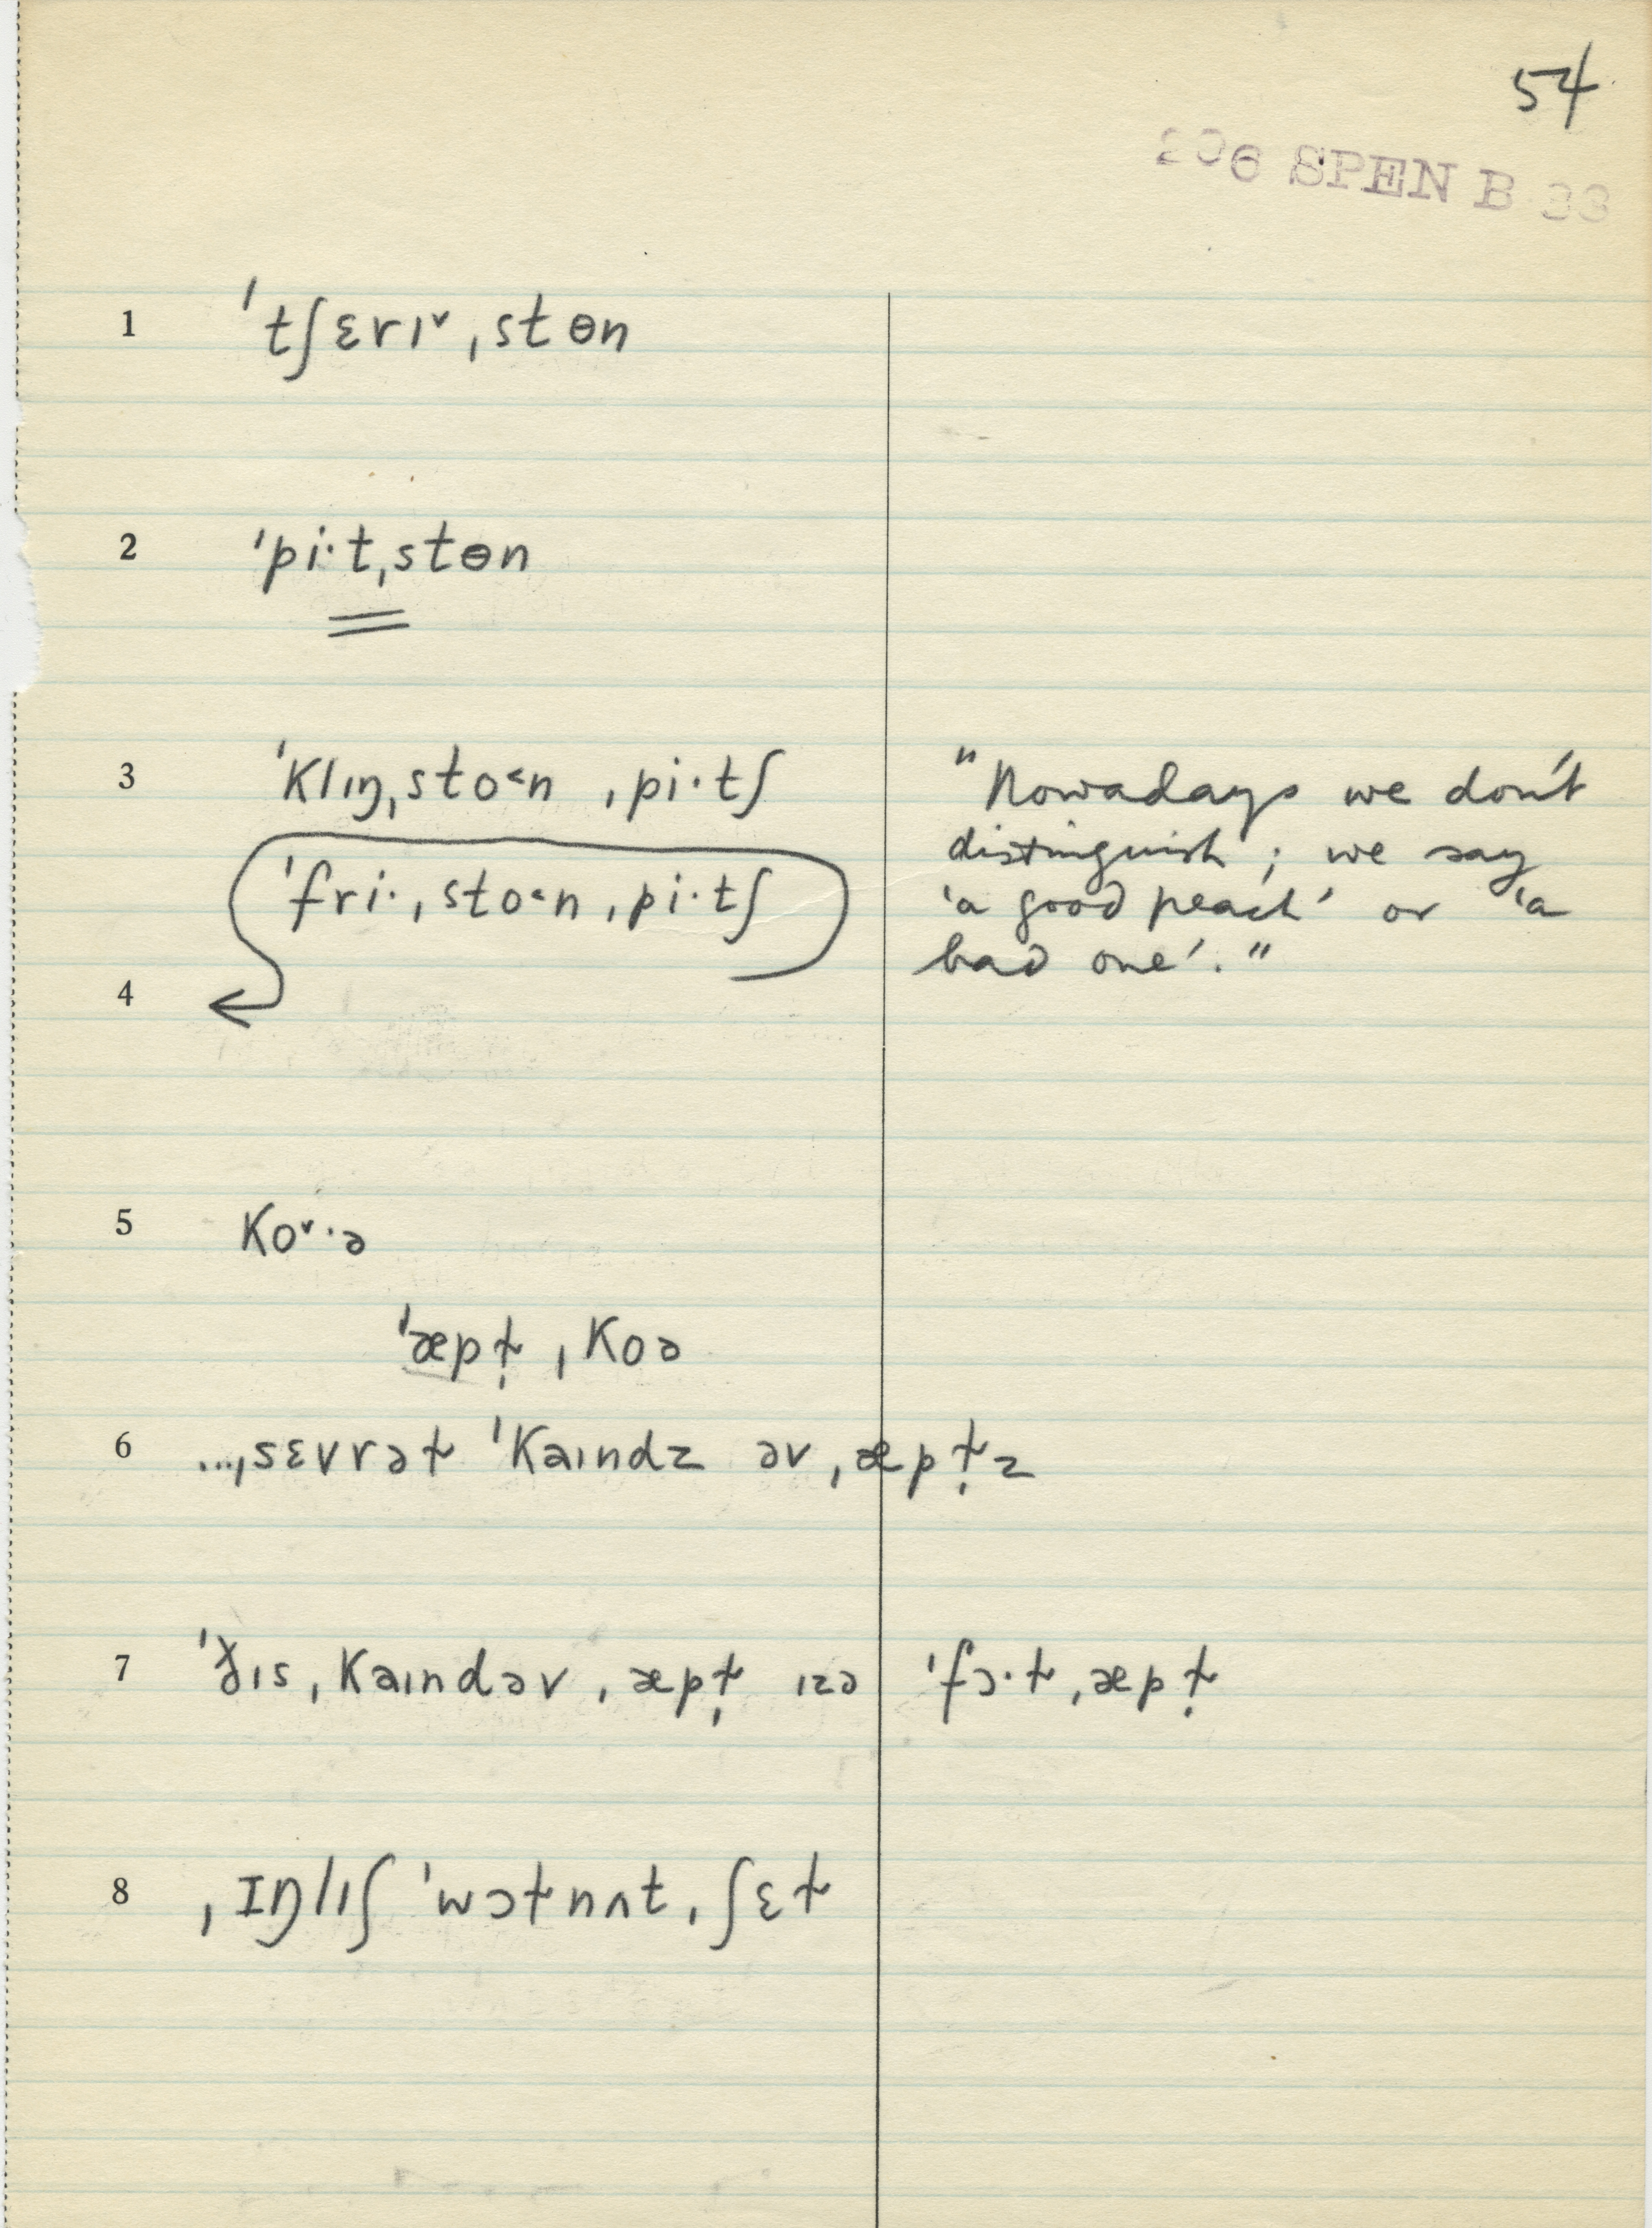 54
206 SPEN B 33
1 ˈtʃɛrɪ˅ˌstɵn
2 ˈpi·tˌstɵn
3 ˈklɪŋˌsto˂n ˌpi·tʃ
ˈfri·ˌsto˂nˌpi·tʃ
"Nowadays we don't
distinguish; we say
'a good peach' or 'a
bad one'."
4
5 ko˅·ə
ˈæpɫ̩ ˌkoə
6 ...ˌsɛvrəɫ ˈkaɪndz əvˌæpɫ̩z
7 ˈðɪsˌkaɪndəvˌæpɫ̩ ɪzə ˈfɔ·ɫˌæpɫ̩
8 ˌɪŋlɪʃ ˈwɔɫnʌtˌʃɛɫ